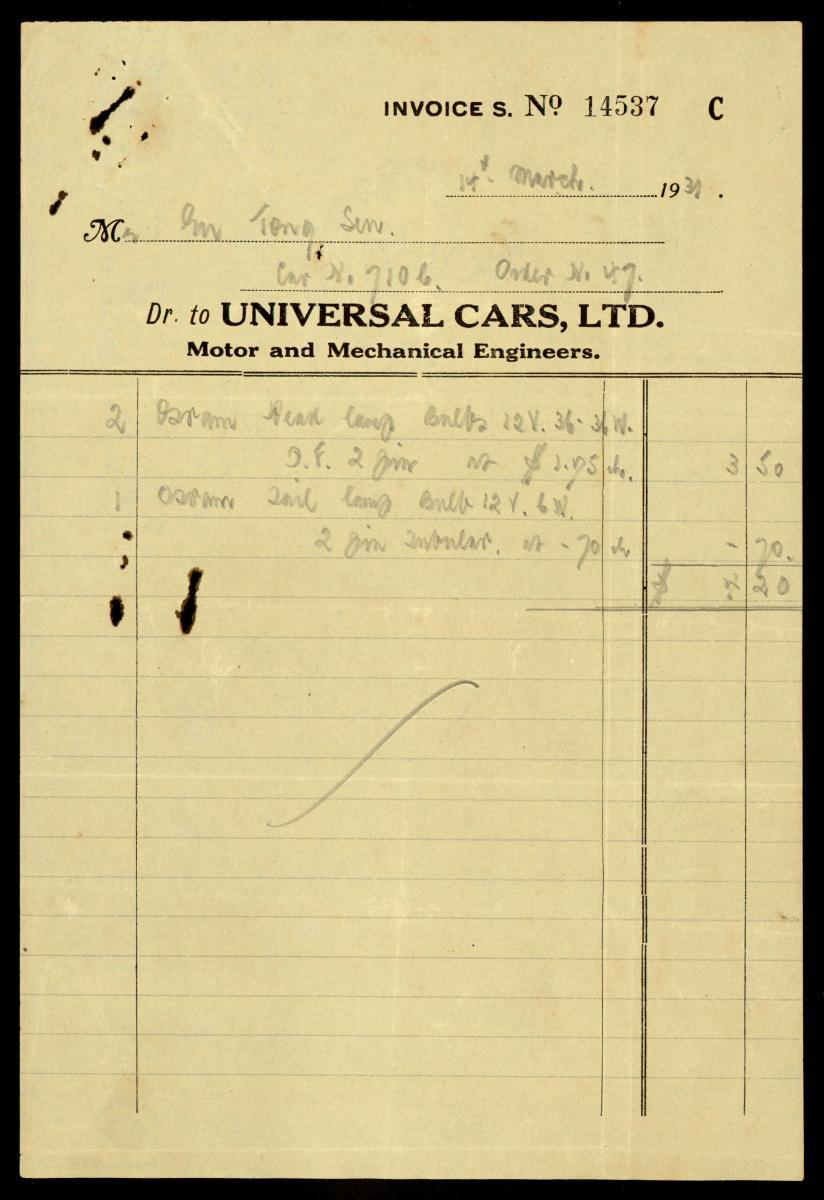 INVOICE S. Nº 14537 C
14th March. 1931.
Mr Tong Sen.
Car No. 7106. Order No. 49.
Dr. to UNIVERSAL CARS, LTD.
Motor and Mechanical Engineers.
2 Osram Head lamp Bulbs 12 V. 36-36 W.
D.F. 2 pin at $1.75 ch. 3 50
1 Osram Tail lamp Bulb 12 V. 6 W.
2 pin Tubular. at -70 ch - 70.
$ 4 20